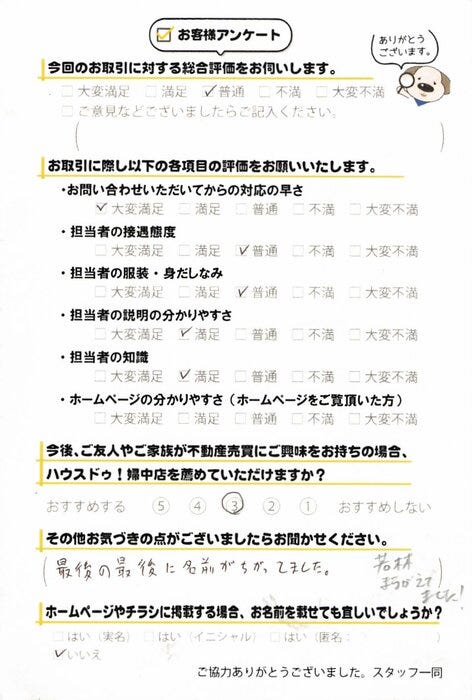 ☑ お客様アンケート
ありがとう
ございます。
今回のお取引に対する総合評価をお伺いします。
□ 大変満足 □ 満足 ☑ 普通 □ 不満 □ 大変不満
□ ご意見などございましたらご記入ください。
( )
お取引に際し以下の各項目の評価をお願いいたします。
・お問い合わせいただいてからの対応の早さ
☑ 大変満足 □ 満足 □ 普通 □ 不満 □ 大変不満
・担当者の接遇態度
□ 大変満足 □ 満足 ☑ 普通 □ 不満 □ 大変不満
・担当者の服装・身だしなみ
□ 大変満足 □ 満足 ☑ 普通 □ 不満 □ 大変不満
・担当者の説明の分かりやすさ
□ 大変満足 ☑ 満足 □ 普通 □ 不満 □ 大変不満
・担当者の知識
□ 大変満足 ☑ 満足 □ 普通 □ 不満 □ 大変不満
・ホームページの分かりやすさ(ホームページをご覧頂いた方)
□ 大変満足 □ 満足 □ 普通 □ 不満 □ 大変不満
今後、ご友人やご家族が不動産売買にご興味をお持ちの場合、
ハウスドゥ!婦中店を薦めていただけますか?
おすすめする ⑤ ④ ③ ② ① おすすめしない
その他お気づきの点がございましたらお聞かせください。
(最後の最後に名前がちがってました。
若林
まちがえて
ました!
ホームページやチラシに掲載する場合、お名前を載せても宜しいでしょうか?
□ はい(実名) □ はい(イニシャル) □ はい(匿名: )
☑ いいえ
ご協力ありがとうございました。スタッフ一同